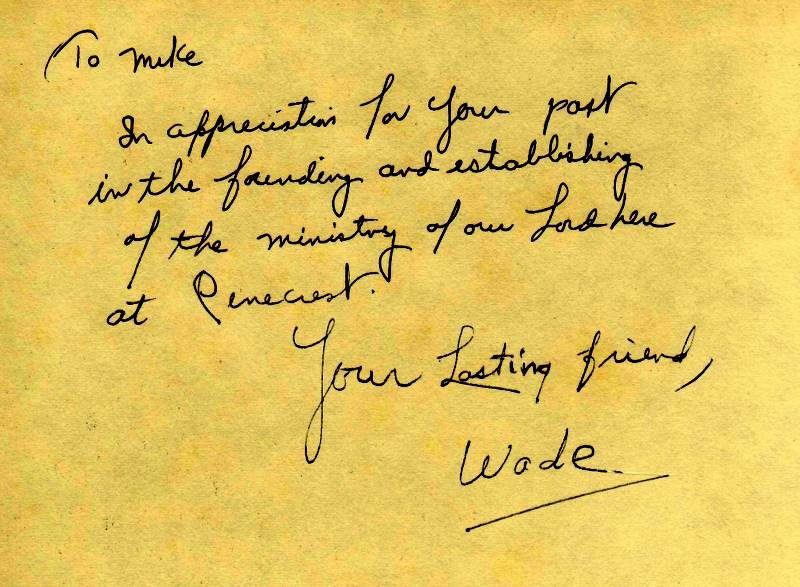 To Mike
In appreciation for your part
in the founding and establishing
of the ministry of our Lord here
at Pinecrest.
Your Lasting friend,
Wade